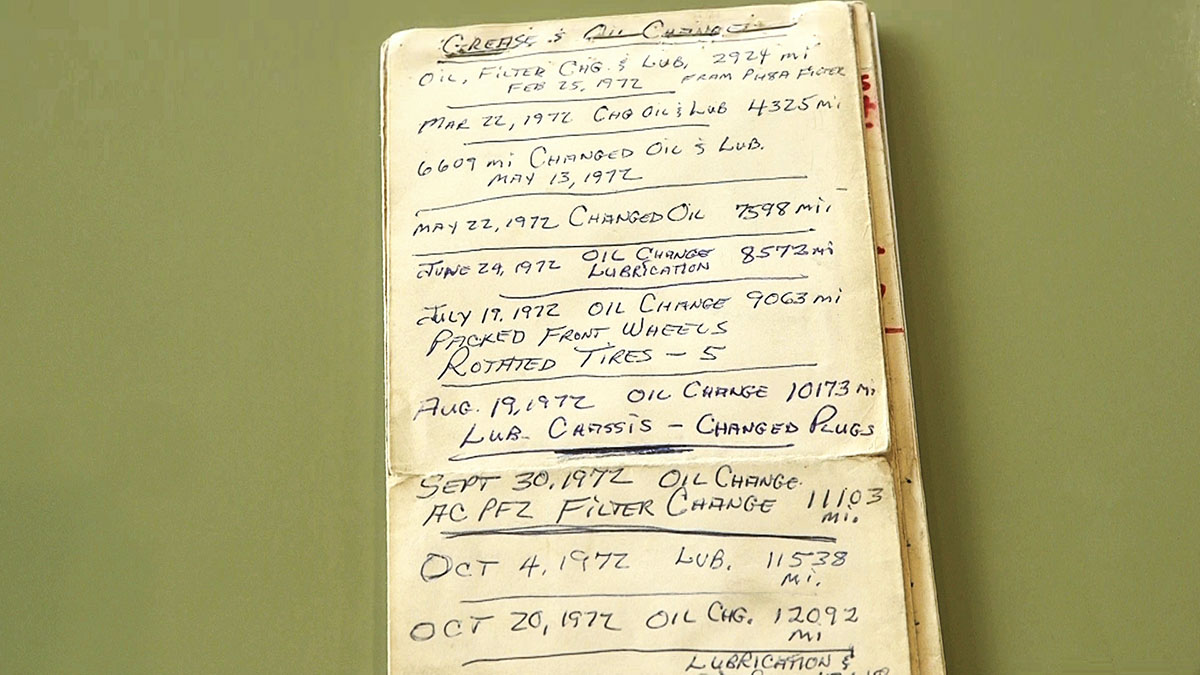 GREASE & OIL CHANGE
OIL, FILTER CHG. & LUB, 2924 mi
FEB 25, 1972 FRAM PH8A FILTER
MAR 22, 1972 CHG OIL & LUB 4325 mi
6609 mi CHANGED OIL & LUB.
MAY 13, 1972
MAY 22, 1972 CHANGED OIL 7598 mi
JUNE 29, 1972 OIL CHANGE 8572 mi
LUBRICATION
JULY 19, 1972 OIL CHANGE 9063 mi
PACKED FRONT WHEELS
ROTATED TIRES - 5
AUG. 19, 1972 OIL CHANGE 10173 mi
LUB. CHASSIS - CHANGED PLUGS
SEPT 30, 1972 OIL CHANGE
AC PF2 FILTER CHANGE 11103
mi.
OCT 4, 1972 LUB. 11538
mi.
OCT 20, 1972 OIL CHG. 12092
mi
LUBRICATION &